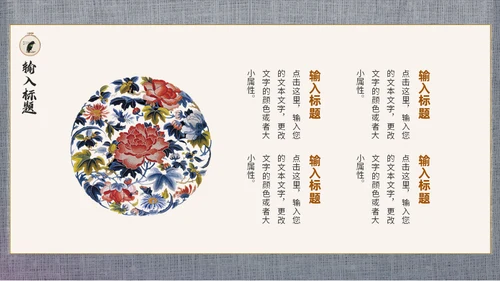 输入标题
输入标题
点击这里，输入您
的文本文字，更改
文字的颜色或者大
小属性。
输入标题
点击这里，输入您
的文本文字，更改
文字的颜色或者大
小属性。
输入标题
点击这里，输入您
的文本文字，更改
文字的颜色或者大
小属性。
输入标题
点击这里，输入您
的文本文字，更改
文字的颜色或者大
小属性。